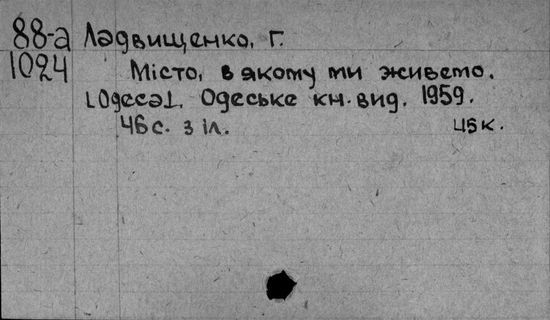 88-а Ладвищенко, Г.
1024 Місто, в якому ми живемо.
[Одеса]. Одеське кн. вид. 1959.
46 с. з іл. 45 к.